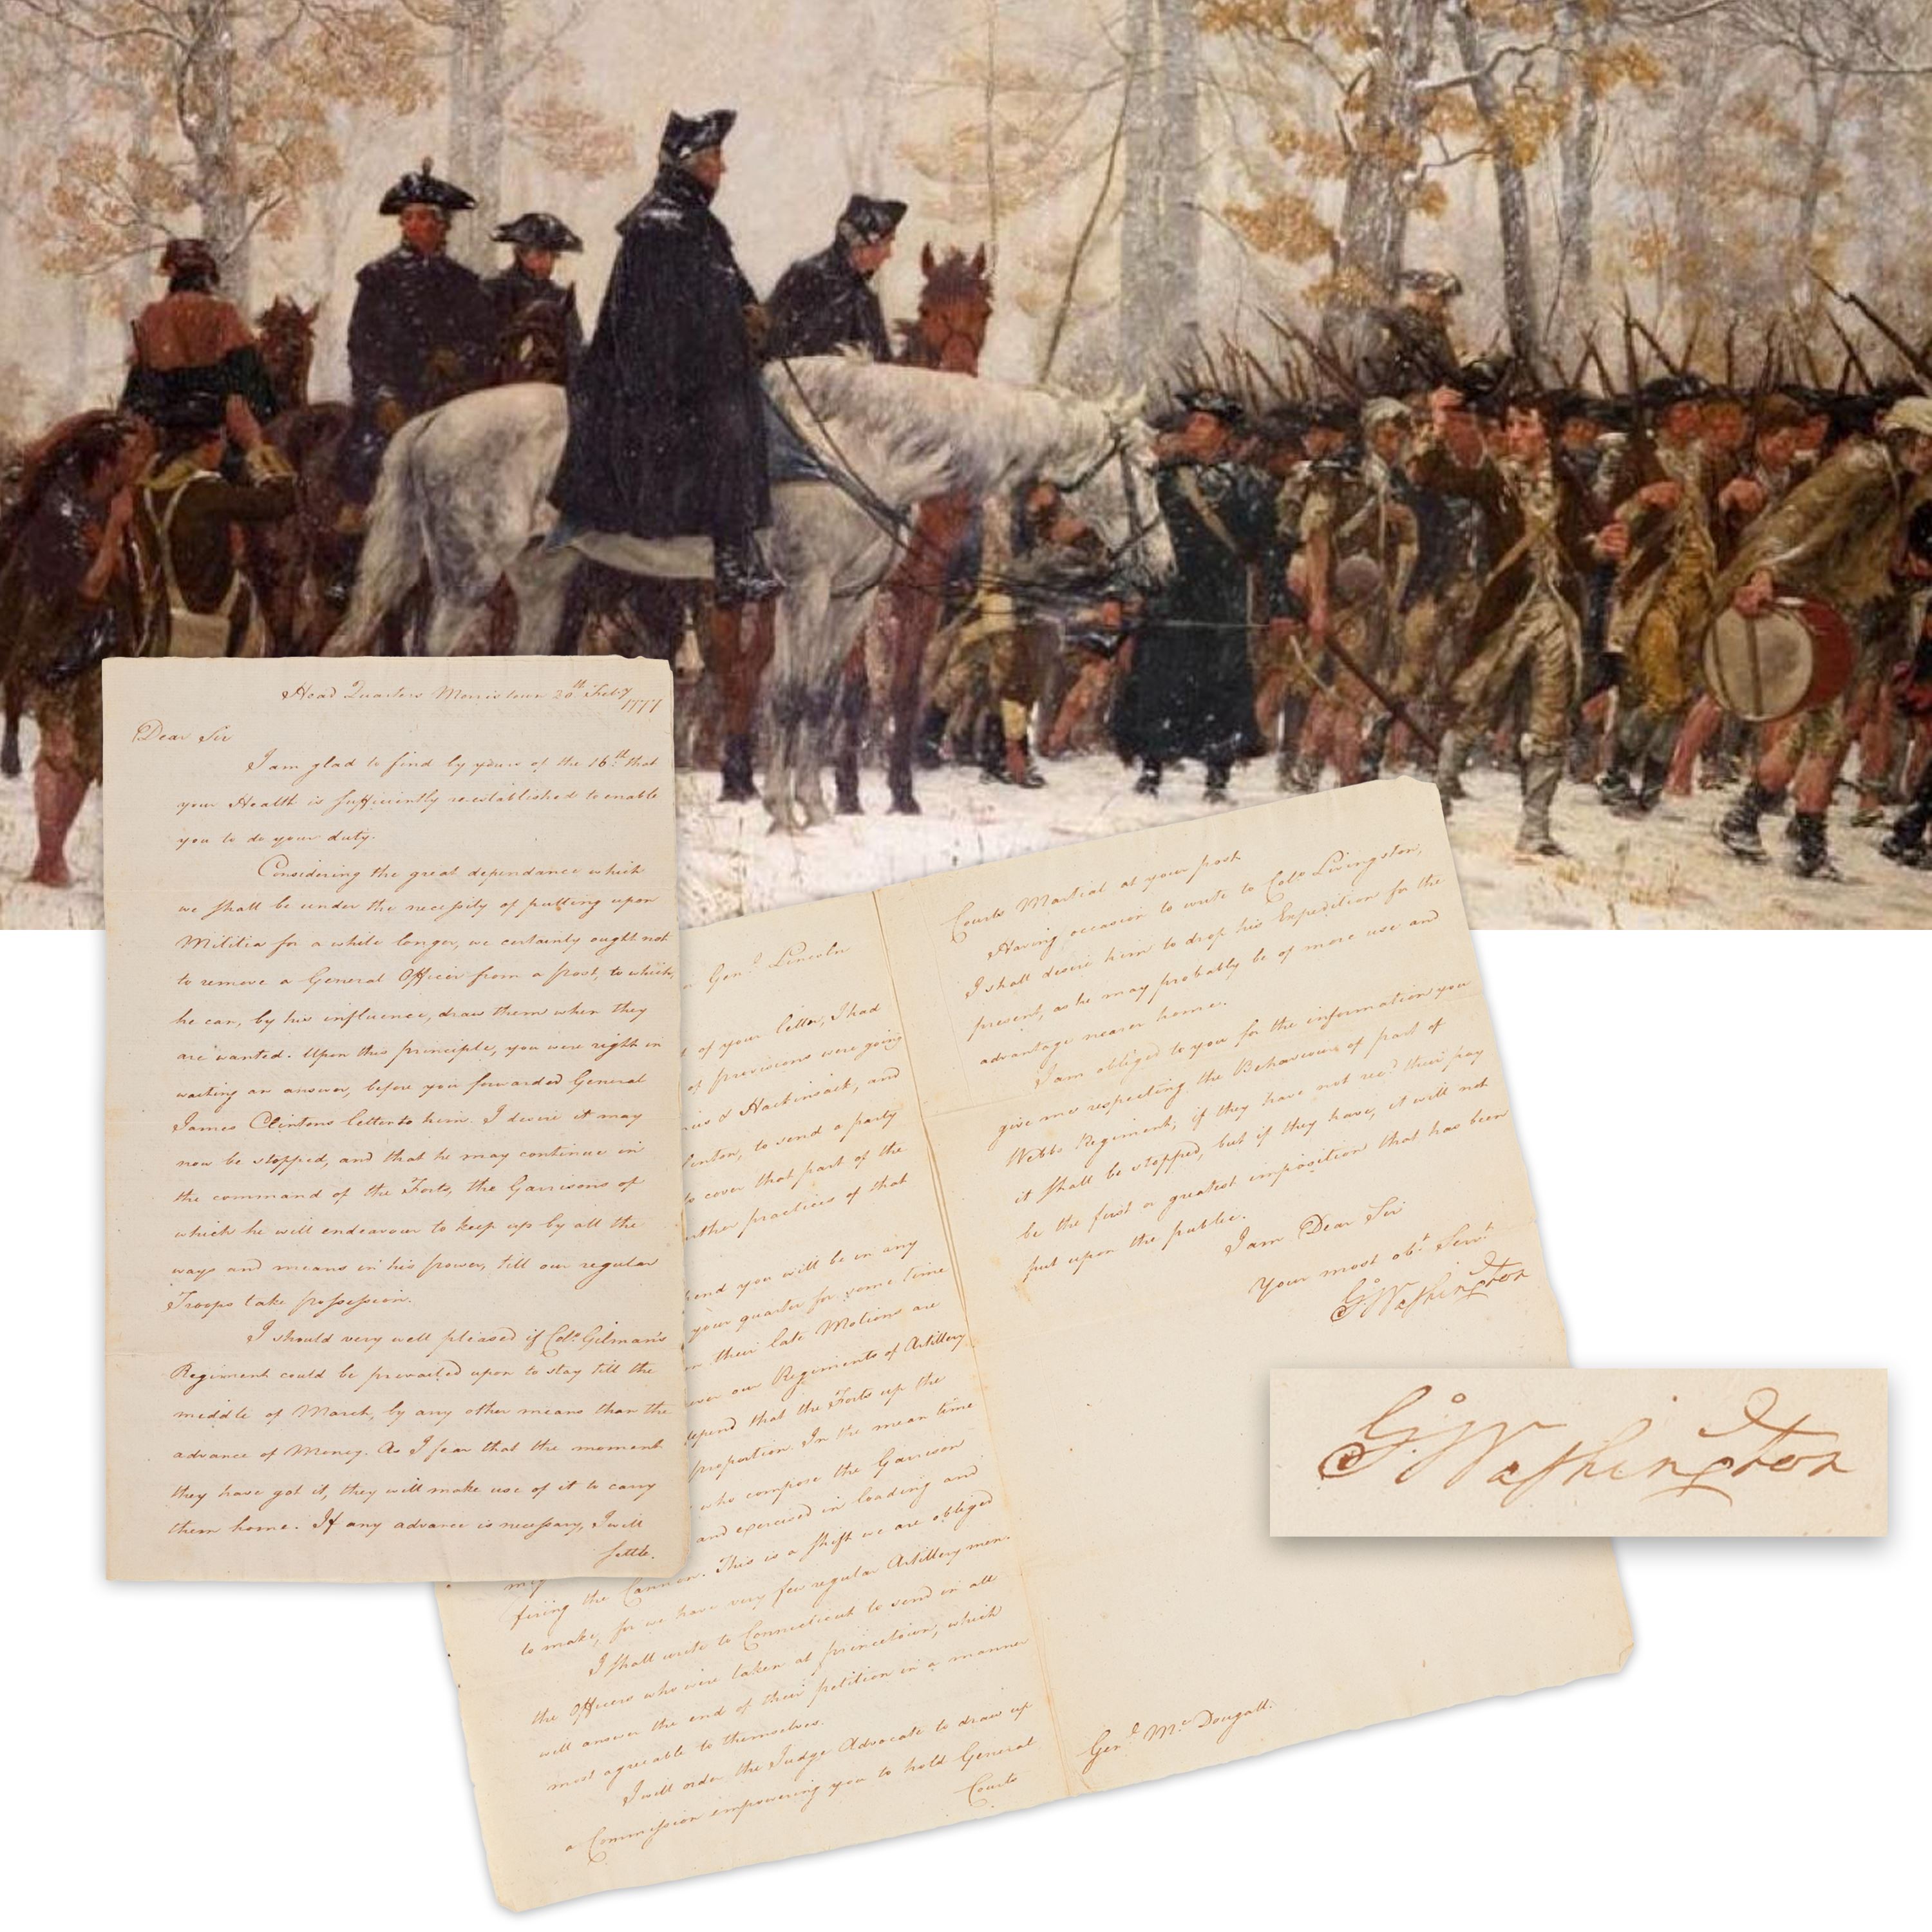 Head Quarters Morristown 20th Feby
1777
Dear Sir
I am glad to find by yours of the 16th that
your Health is sufficiently reestablished to enable
you to do your duty.
Considering the great dependance which
we shall be under the necessity of putting upon
Militia for a while longer, we certainly ought not
to remove a General Officer from a post, to which,
he can, by his influence, draw them when they
are wanted. Upon this principle, you were right in
waiting an answer, before you forwarded General
James Clintons letter to him. I desire it may
now be stopped, and that he may continue in
the command of the Forts, the Garrisons of
which he will endeavour to keep up by all the
ways and means in his power, till our regular
Troops take possession.
I should very well pleased if Colo. Gilman's
Regiment could be prevailed upon to stay till the
middle of March, by any other means than the
advance of Money. As I fear that the moment
they have got it, they will make use of it to carry
them home. If any advance is necessary, I will
settle.
Genl. Lincoln
of your letter, I had
of provisions were going
& Hackinsack, and
to send a party
to cover that part of the
practices of that
you will be in any
your quarter for some time
their late Motions are
our Regiments of Artillery
that the Forts up the
proportion. In the mean time
who compose the Garrison
and exercised in loading and
firing the Cannon. This is a shift we are obliged
to make, for we have very few regular Artillery men.
I shall write to Connecticut to send in all
the Officers who were taken at princetown, which
will answer the end of their petition in a manner
most agreeable to themselves.
I will order the Judge Advocate to draw up
a Commission empowering you to hold General
Courts
Courts Martial at your post.
Having occasion to write to Colo Livingston,
I shall desire him to drop his Expedition for the
present, as he may probably be of more use and
advantage nearer home.
I am obliged to you for the information you
give me respecting the Behaviour of part of
Webbs Regiment, if they have not recd their pay
it shall be stopped, but if they have, it will not
be the first or greatest imposition that has been
put upon the public.
I am Dear Sir
Your most obt Servt
Go Washington
Genl McDougall.
Go Washington